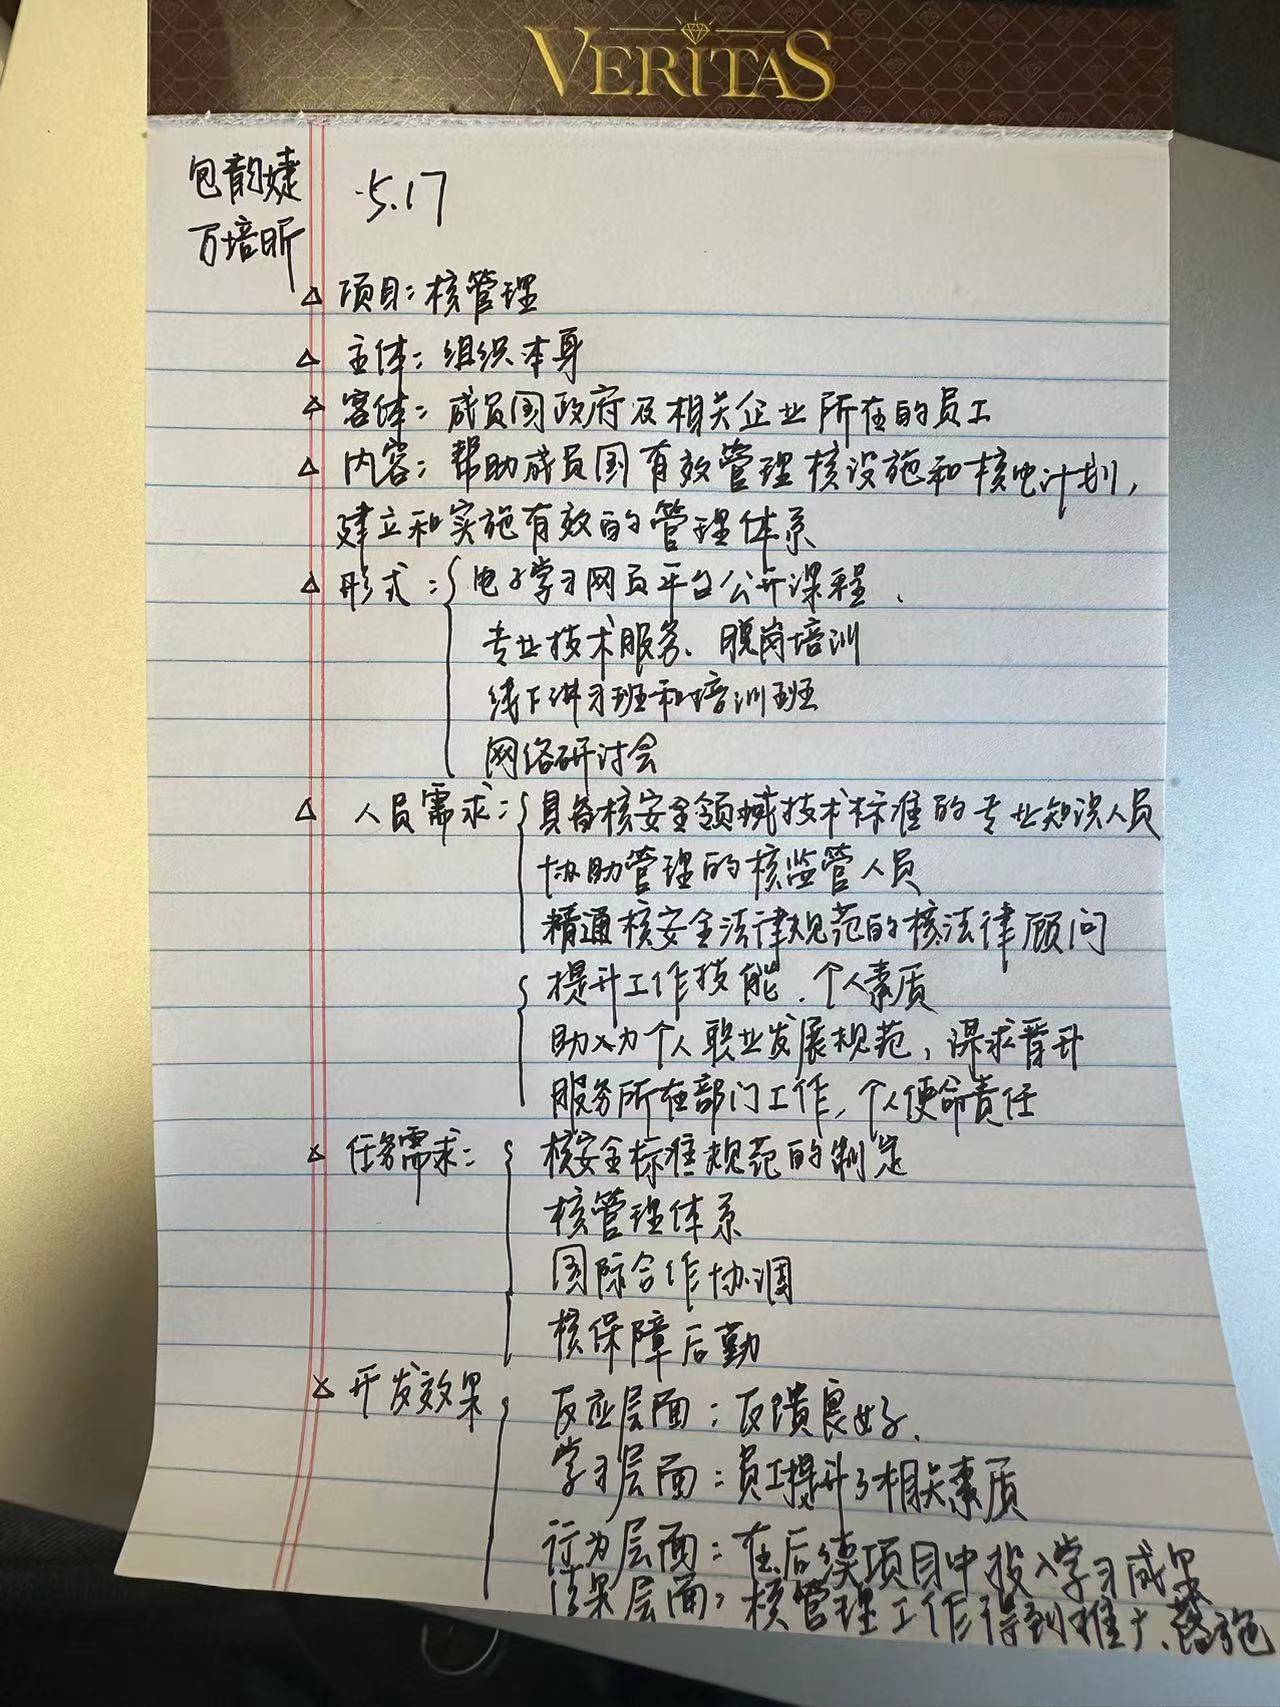 VERITAS
包韵婕
5.17
万培昕
△ 项目：核管理
△ 主体：组织本身
△ 客体：成员国政府及相关企业所在的员工
△ 内容：帮助成员国有效管理核设施和核电计划，
建立和实施有效的管理体系
△ 形式：{ 电子学习网页平台公开课程、
专业技术服务、脱岗培训
线下讲习班和培训班
网络研讨会
△ 人员需求：{ 具备核安全领域技术标准的专业知识人员
协助管理的核监管人员
精通核安全法律规范的核法律顾问
{ 提升工作技能、个人素质
助力个人职业发展规范，谋求晋升
服务所在部门工作，个人使命责任
△ 任务需求：{ 核安全标准规范的制定
核管理体系
国际合作协调
核保障后勤
△ 开发效果 { 反应层面：反馈良好、
学习层面：员工提升了相关素质
行为层面：在后续项目中投入学习成果
结果层面：核管理工作得到推广、落施